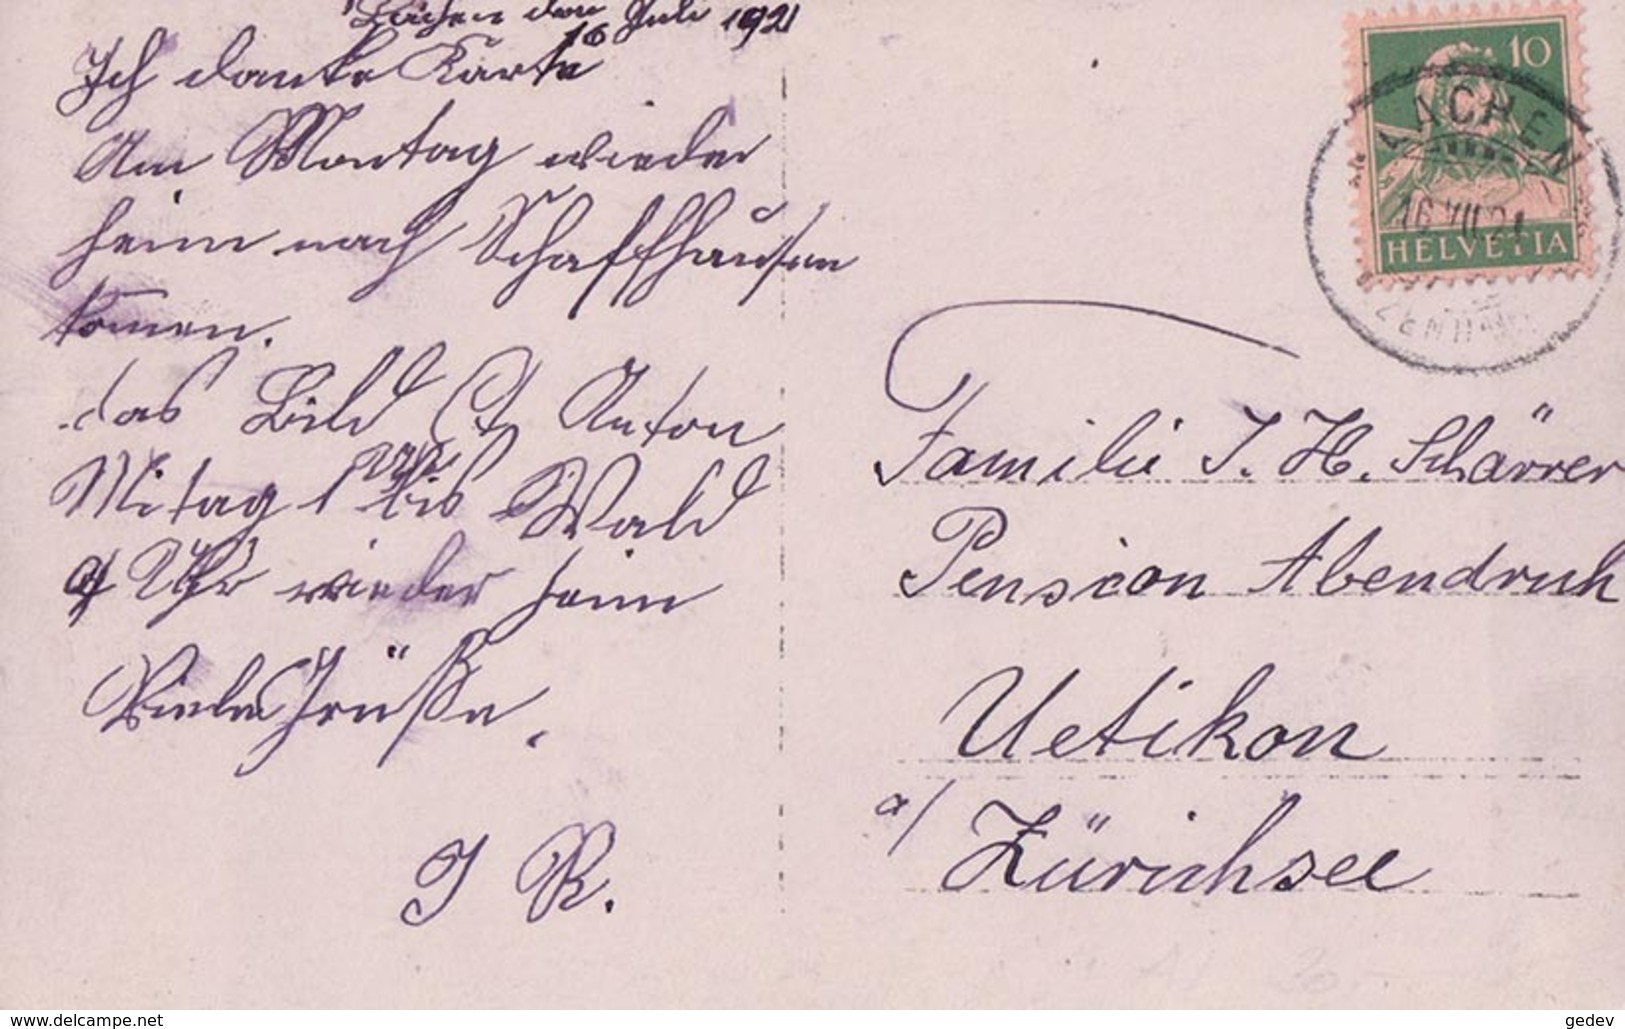 Lachen den 16 Juli 1921
Ich danke Karte
Am Montag wieder
heim nach Schaffhausen
komen.
das Bild St Anton
Mitag 1 Uhr bis Wald
9 Uhr wieder heim
Viele Grüße.
J R.
10
LACHEN
16.VII.21
HELVETIA
Familie J. H. Schärrer
Pension Abendruh
Uetikon
a/
Zürichsee
www.delcampe.net
gedev